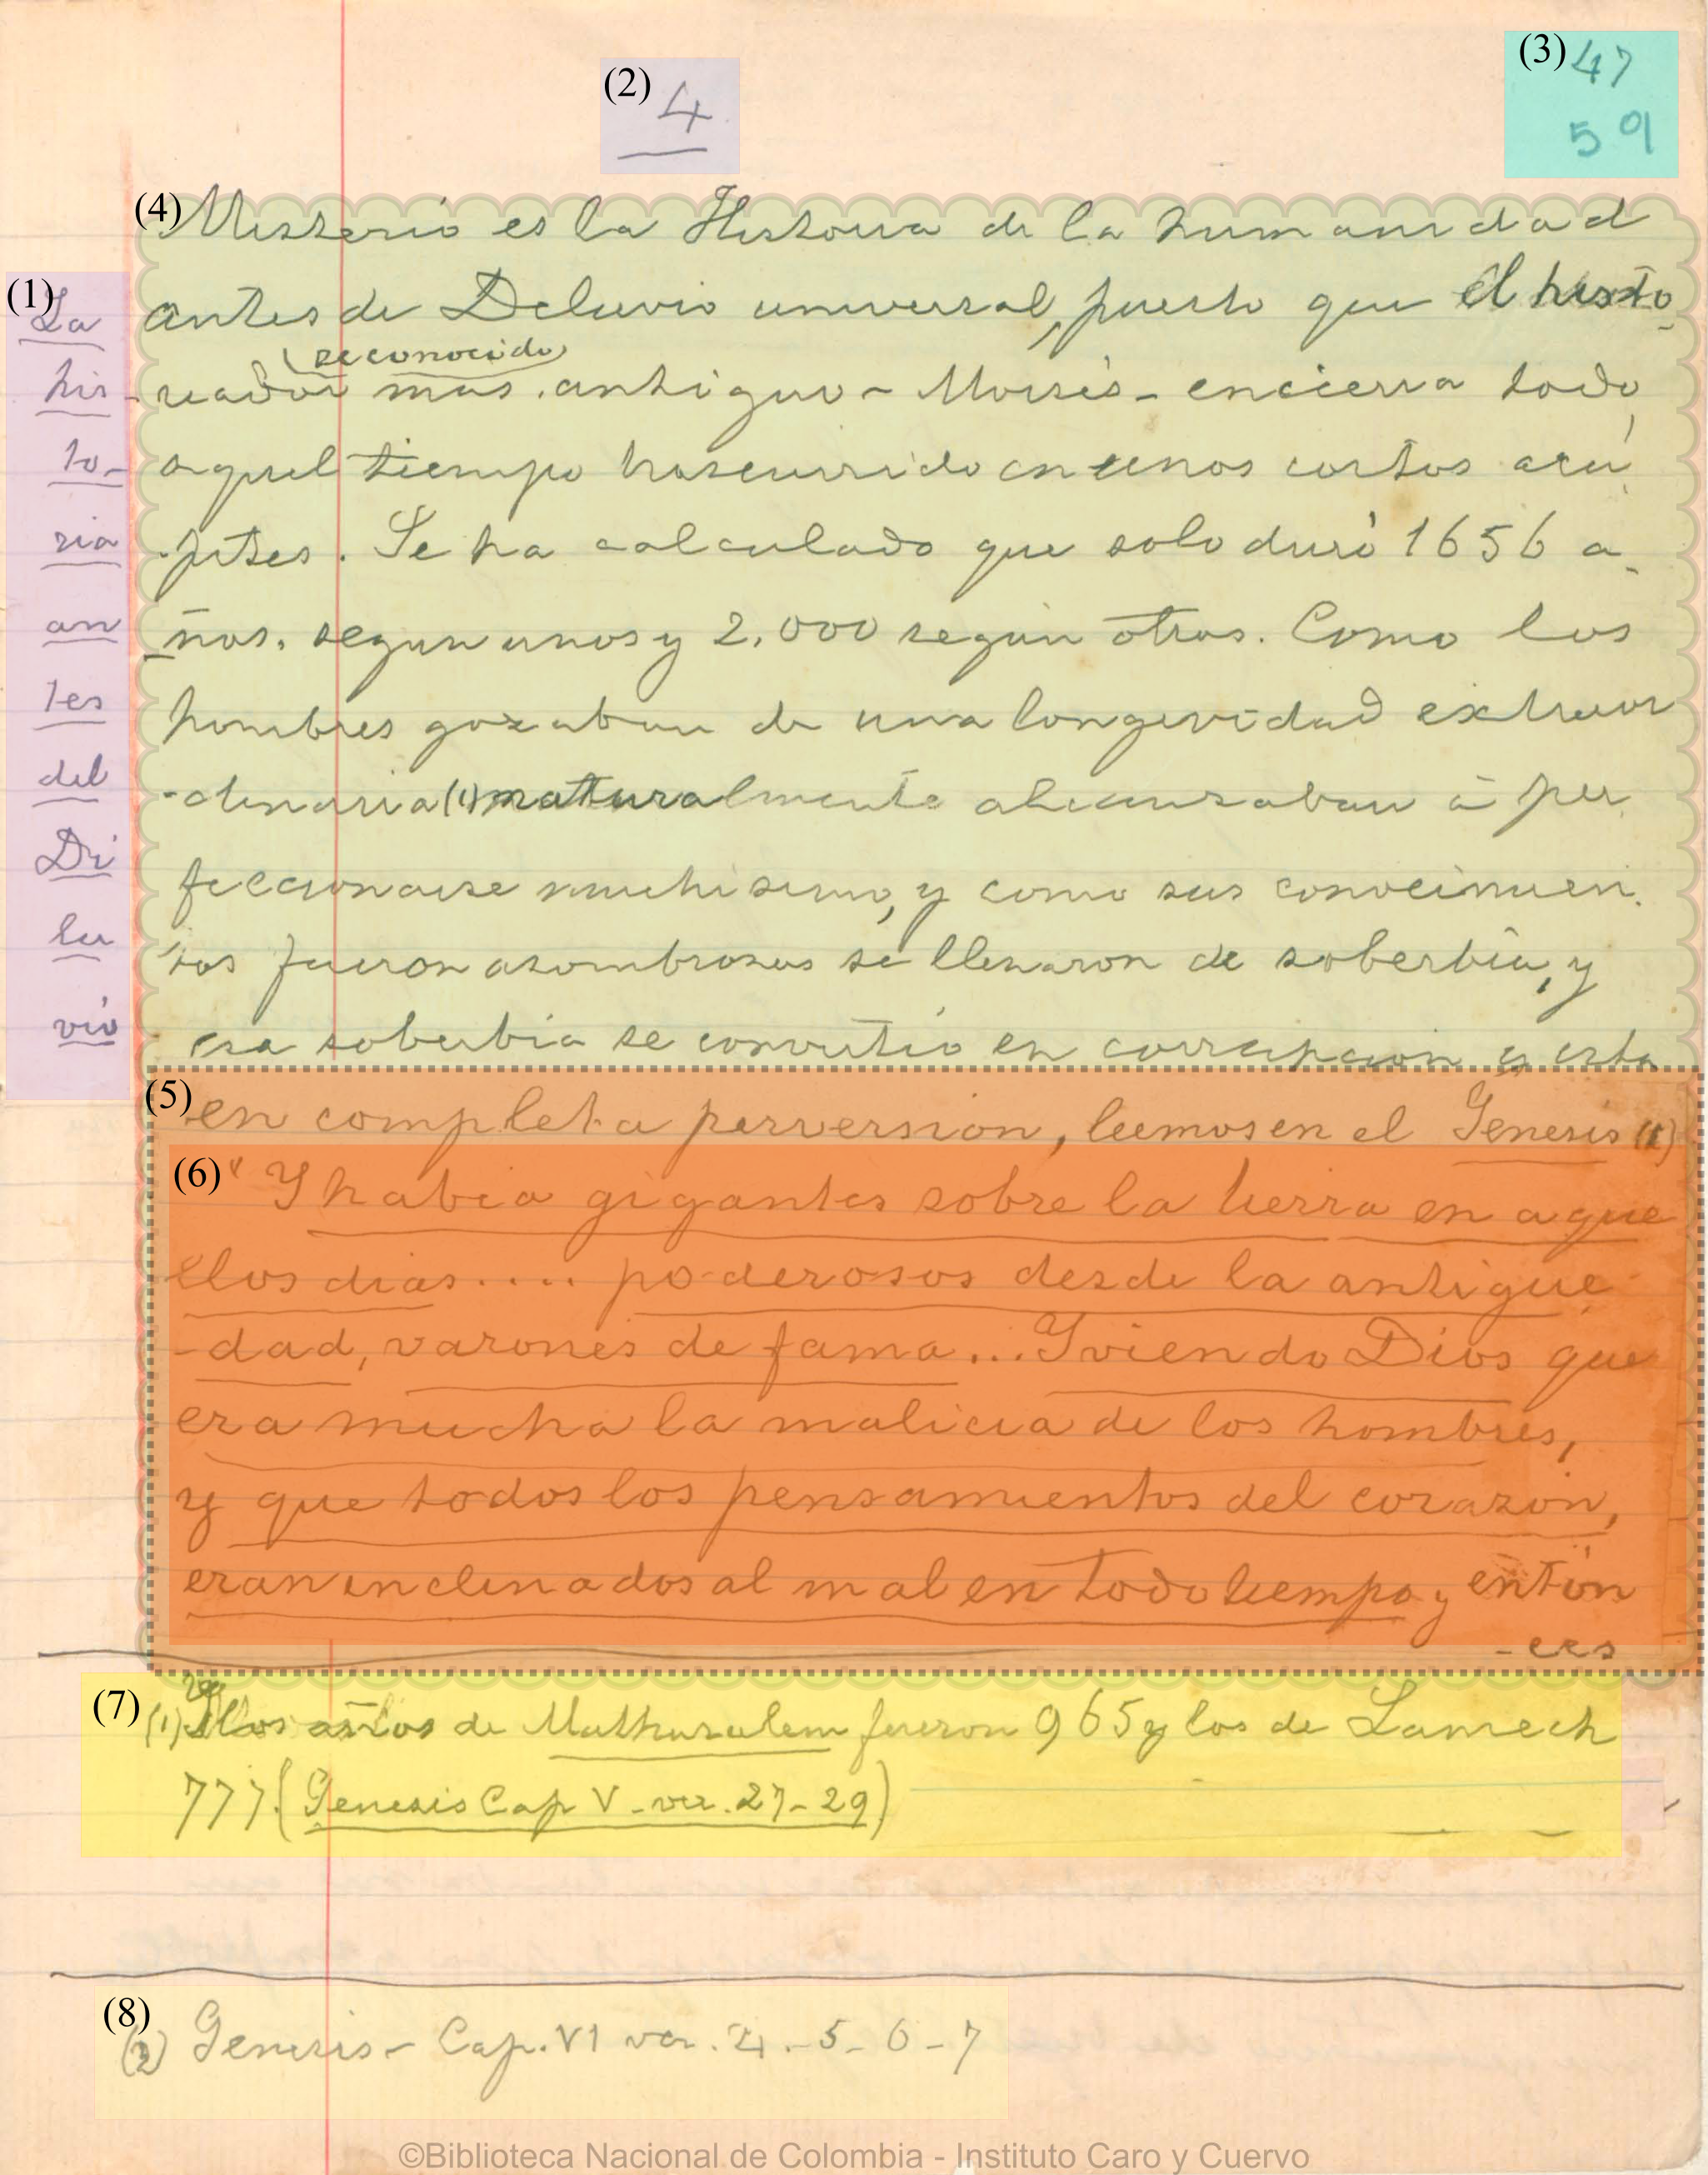 (2) 4
(3) 47
59
(1) La
his
to-
ria
an
tes
del
Di
lu
vio
(4) Misterio es la Historia de la humanidad
antes de Deluvio universal, puesto que el histo-
(reconocido)
riador mas antiguo - Moisés - encierra todo
aquel tiempo trascurrido en unos cortos acá
pites. Se ha calculado que solo duró 1656 a-
ños. segun unos y 2.000 según otros. Como los
hombres gozaban de una longevidad extraor
-dinaria (1) naturalmente alcanzaban á per
feccionarse muchisimo, y como sus conocimien
tos fueron asombrosos se llenaron de soberbia, y
esa soberbia se convirtió en corrupcion y esta
(5) en completa perversion, leemos en el Genesis
(6) "Y habia gigantes sobre la tierra en aque
llos dias.... poderosos desde la antigue
-dad, varones de fama... Y viendo Dios que
era mucha la malicia de los hombres,
y que todos los pensamientos del corazón,
eran inclinados al mal en todo tiempo y entón
-ces
(7) (1) los años de Mathusalem fueron 965 y los de Lamech
777. (Genesis Cap V - ver. 27-29)
(8) (2) Genesis - Cap. VI ver. 4.-5-6-7
©Biblioteca Nacional de Colombia - Instituto Caro y Cuervo